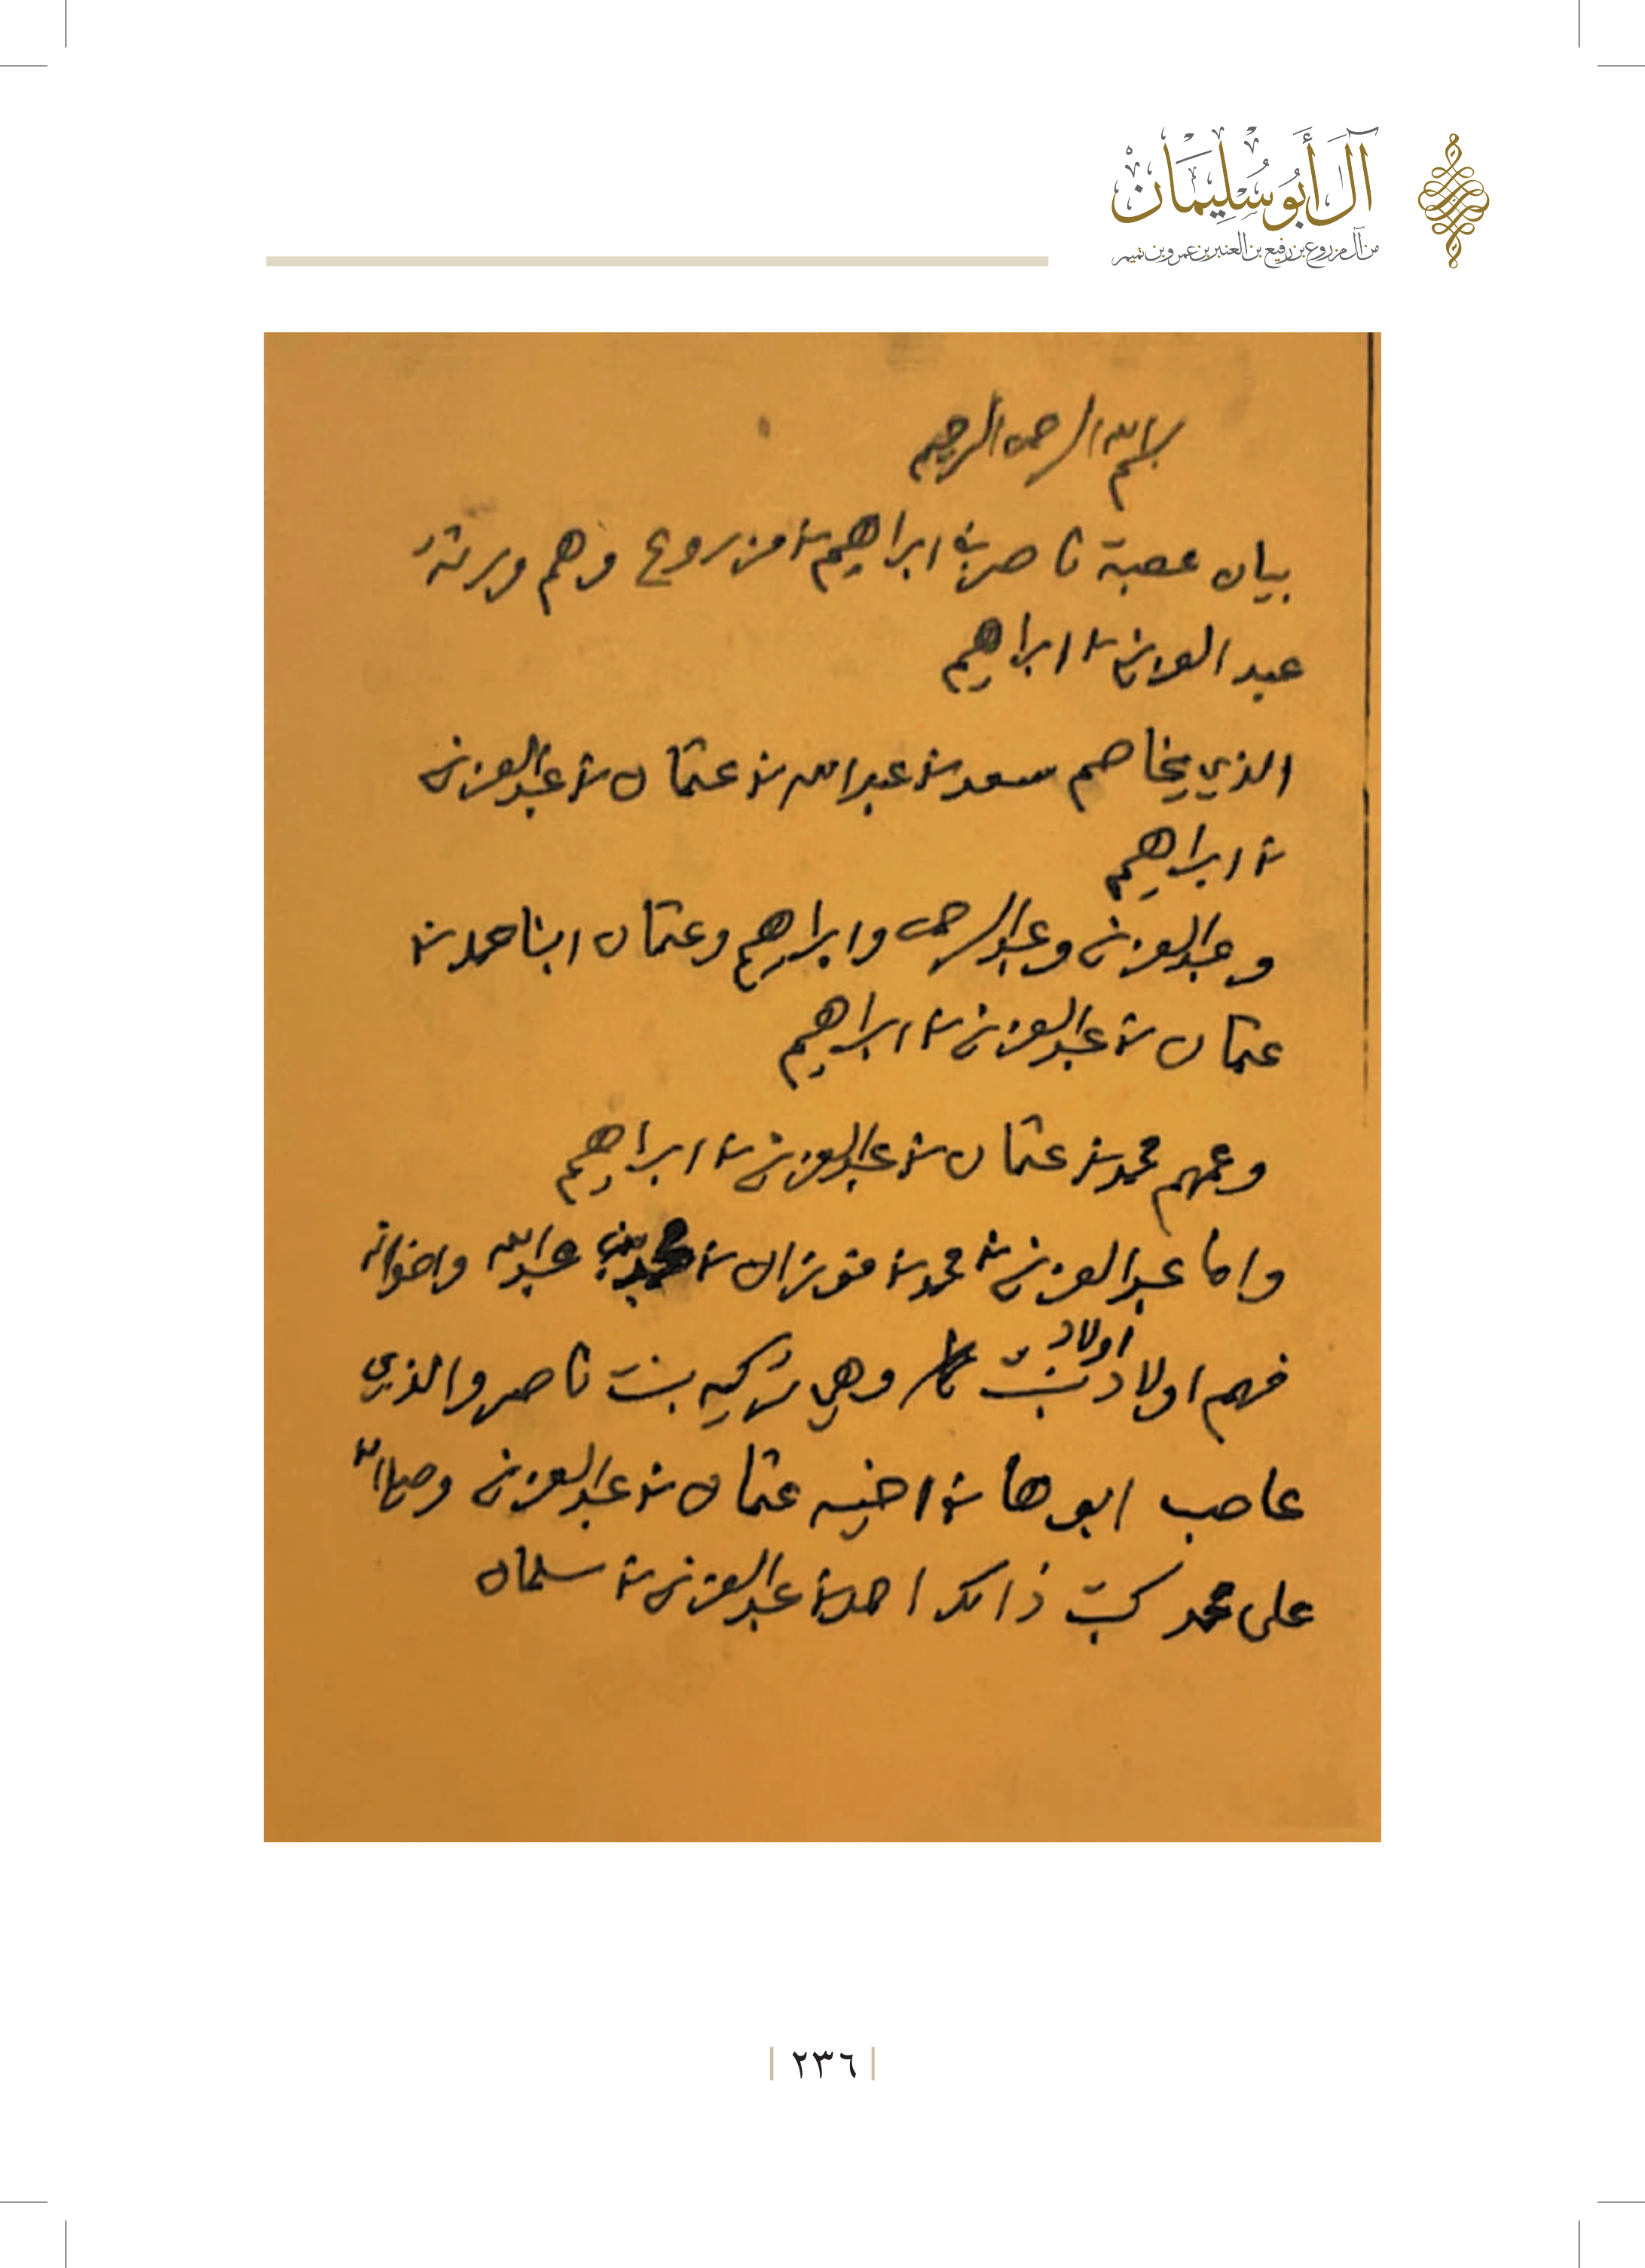 آل أَبُو سُلِيْمَان
من آل مزروع بن رفيع بن العنبر بن عمرو بن تميم
بسم الله الرحمن الرحيم
بيان عصبة ناصر بن ابراهيم بن مزروع وهم ورثته
عبد العزيز بن ابراهيم
الذي يخاصم سعد بن عبدالله بن عثمان بن عبدالعزيز
بن ابراهيم
وعبدالعزيز وعبدالرحمن وابراهيم وعثمان ابنا حمد بن
عثمان بن عبدالعزيز بن ابراهيم
وعمهم محمد بن عثمان بن عبدالعزيز بن ابراهيم
واما عبدالعزيز بن محمد بن فوزان بن محمد بن عبدالله واخوانه
اولاد
فهم اولاد بنت وهي تركيه بنت ناصر والذي
عاصب ابوها بن اخيه عثمان بن عبدالعزيز وصلى الله
على محمد كتب ذالك احمد بن عبدالعزيز بن سلمان
٢٣٦